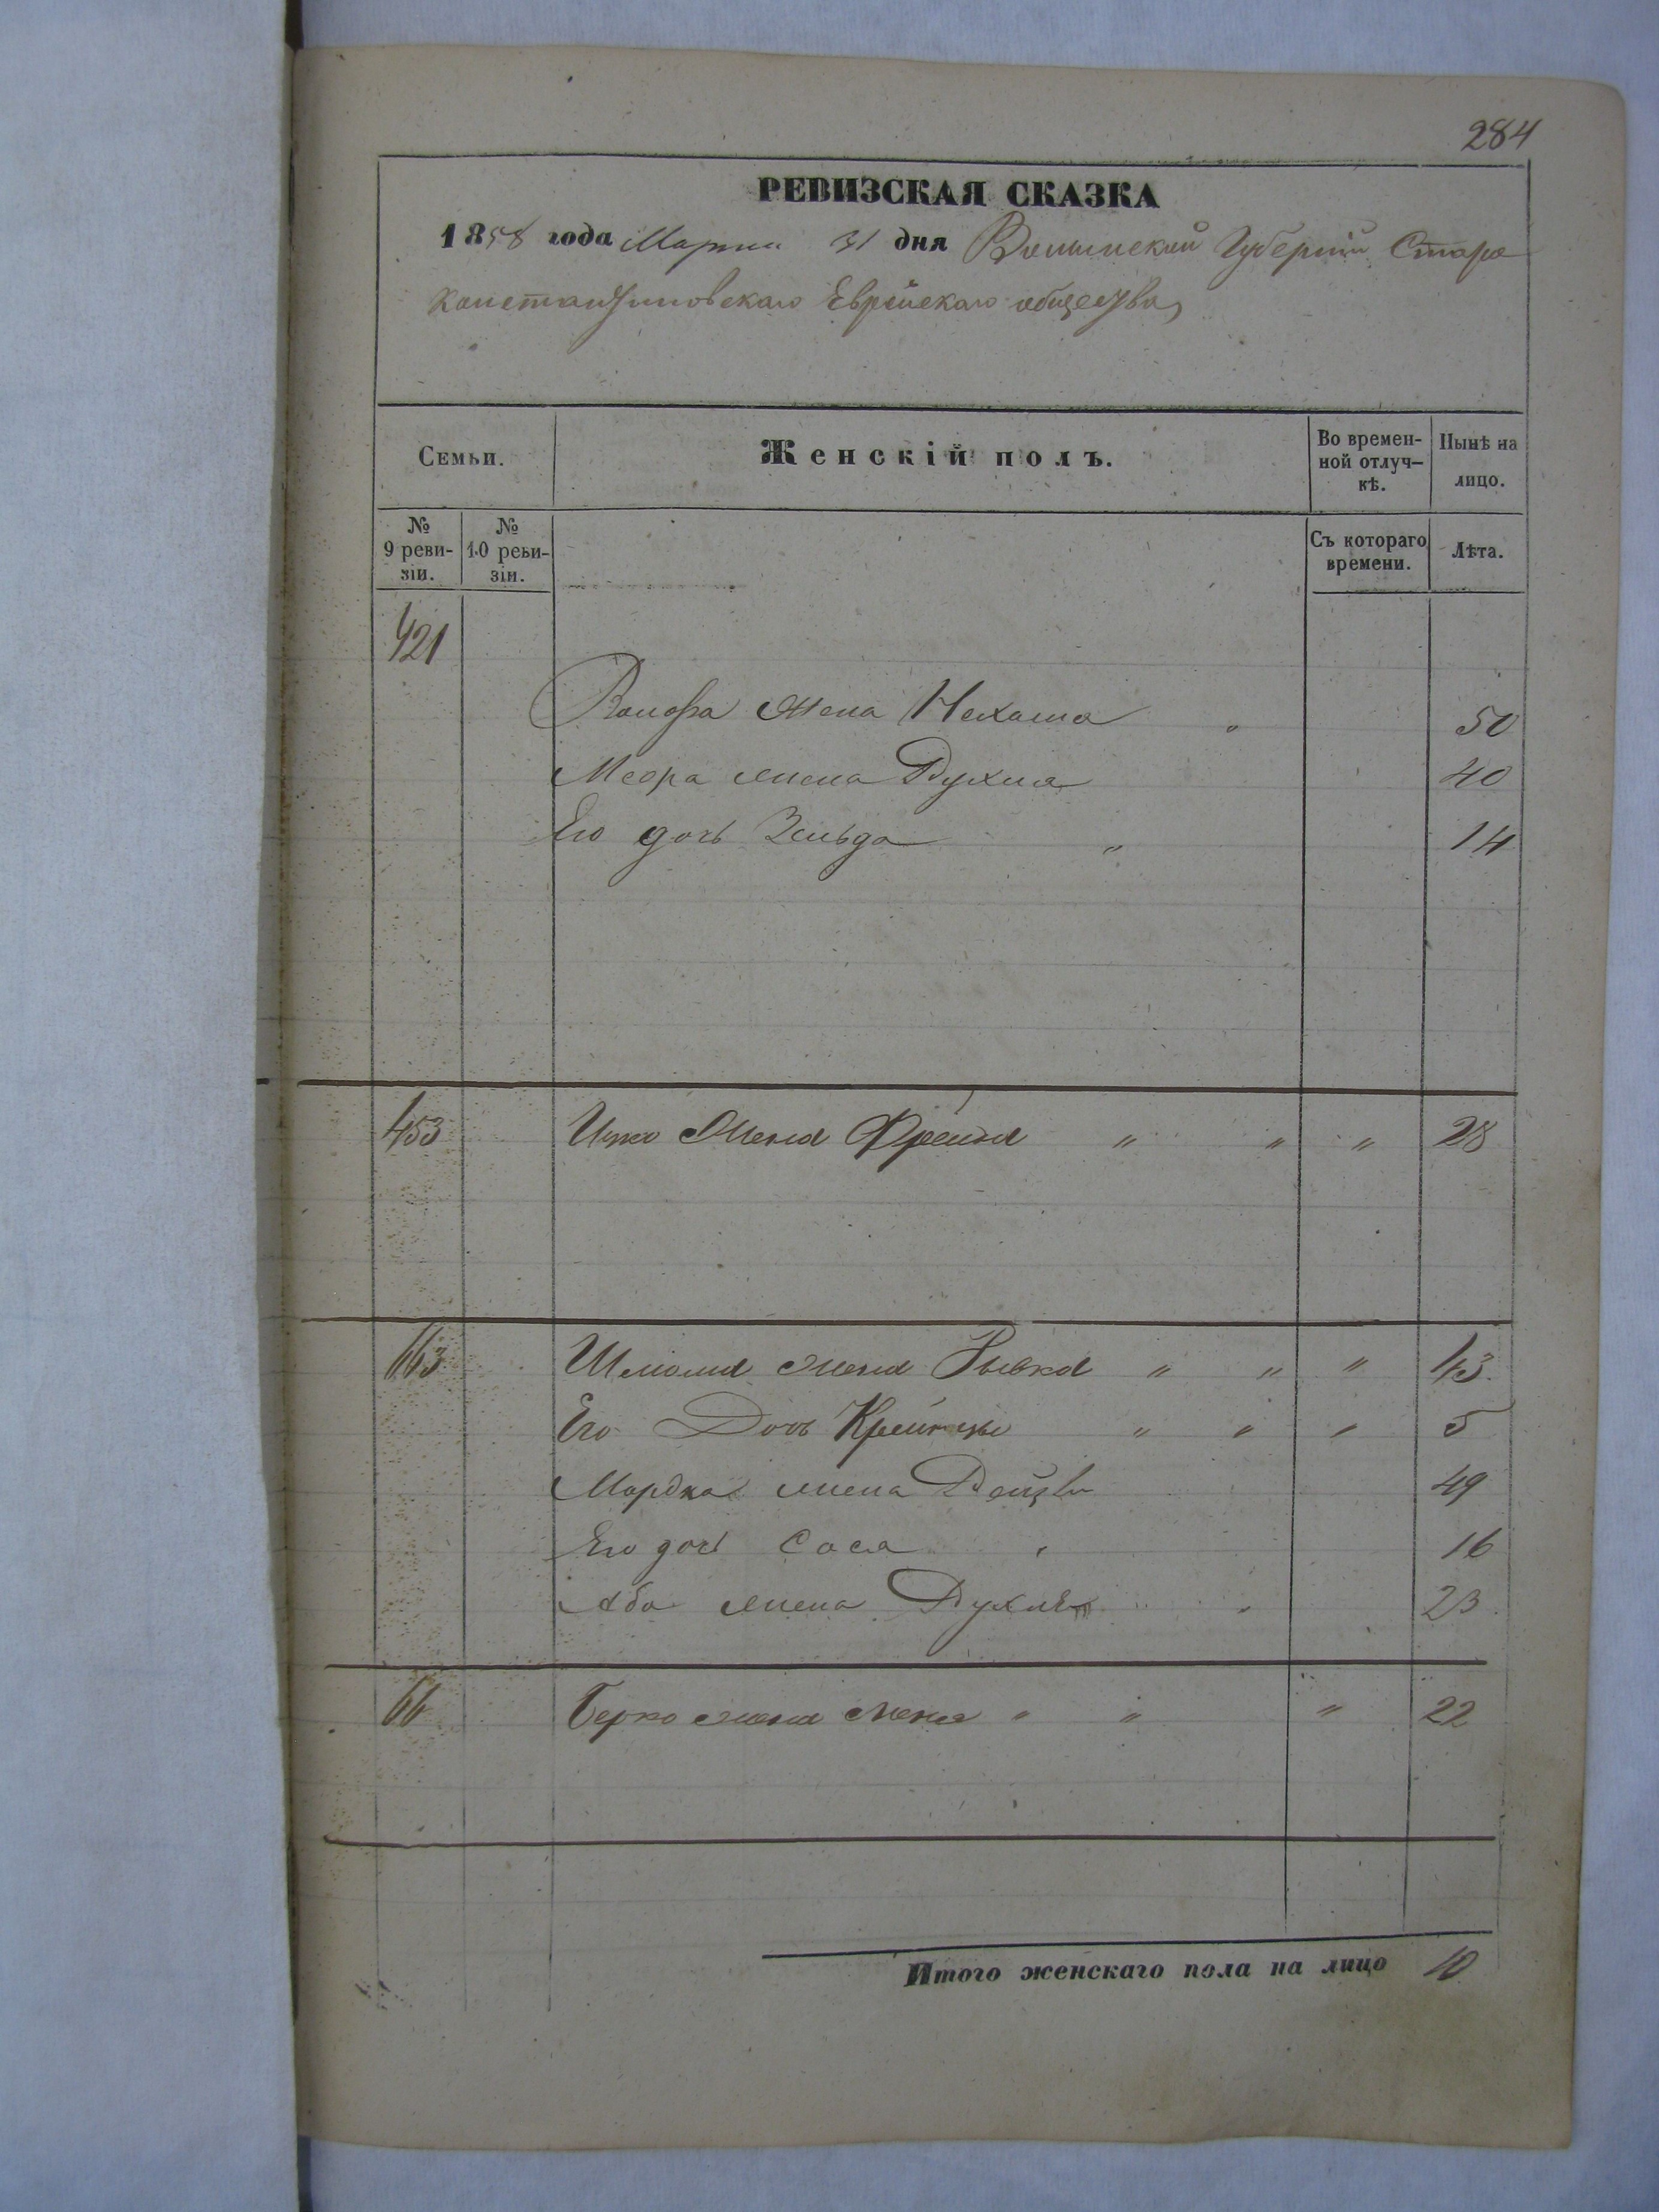 284
РЕВИЗСКАЯ СКАЗКА
1858 года Марта 31 дня Волынской Губерніи Старо
константиновскаго Еврейскаго общества
Семьи.
Женскій полъ.
Во времен-
ной отлуч-
кѣ.
Нынѣ на
лицо.
№
9 реви-
зіи.
№
10 реви-
зіи.
Съ котораго
времени.
Лѣта.
421
жена Нехама " 50
Меера жена Рухля 40
Его дочь Зельда " 14
453 Ицко Жена Фрейда " " " 28
663 Шлиома жена Рывка " " " 43
Его Дочь " " " 5
Мордка жена Рейзя 49
Его дочь Сося " 16
Аба жена Рухля " 23
66 Берко жена " " " 22
Итого женскаго пола на лицо 10